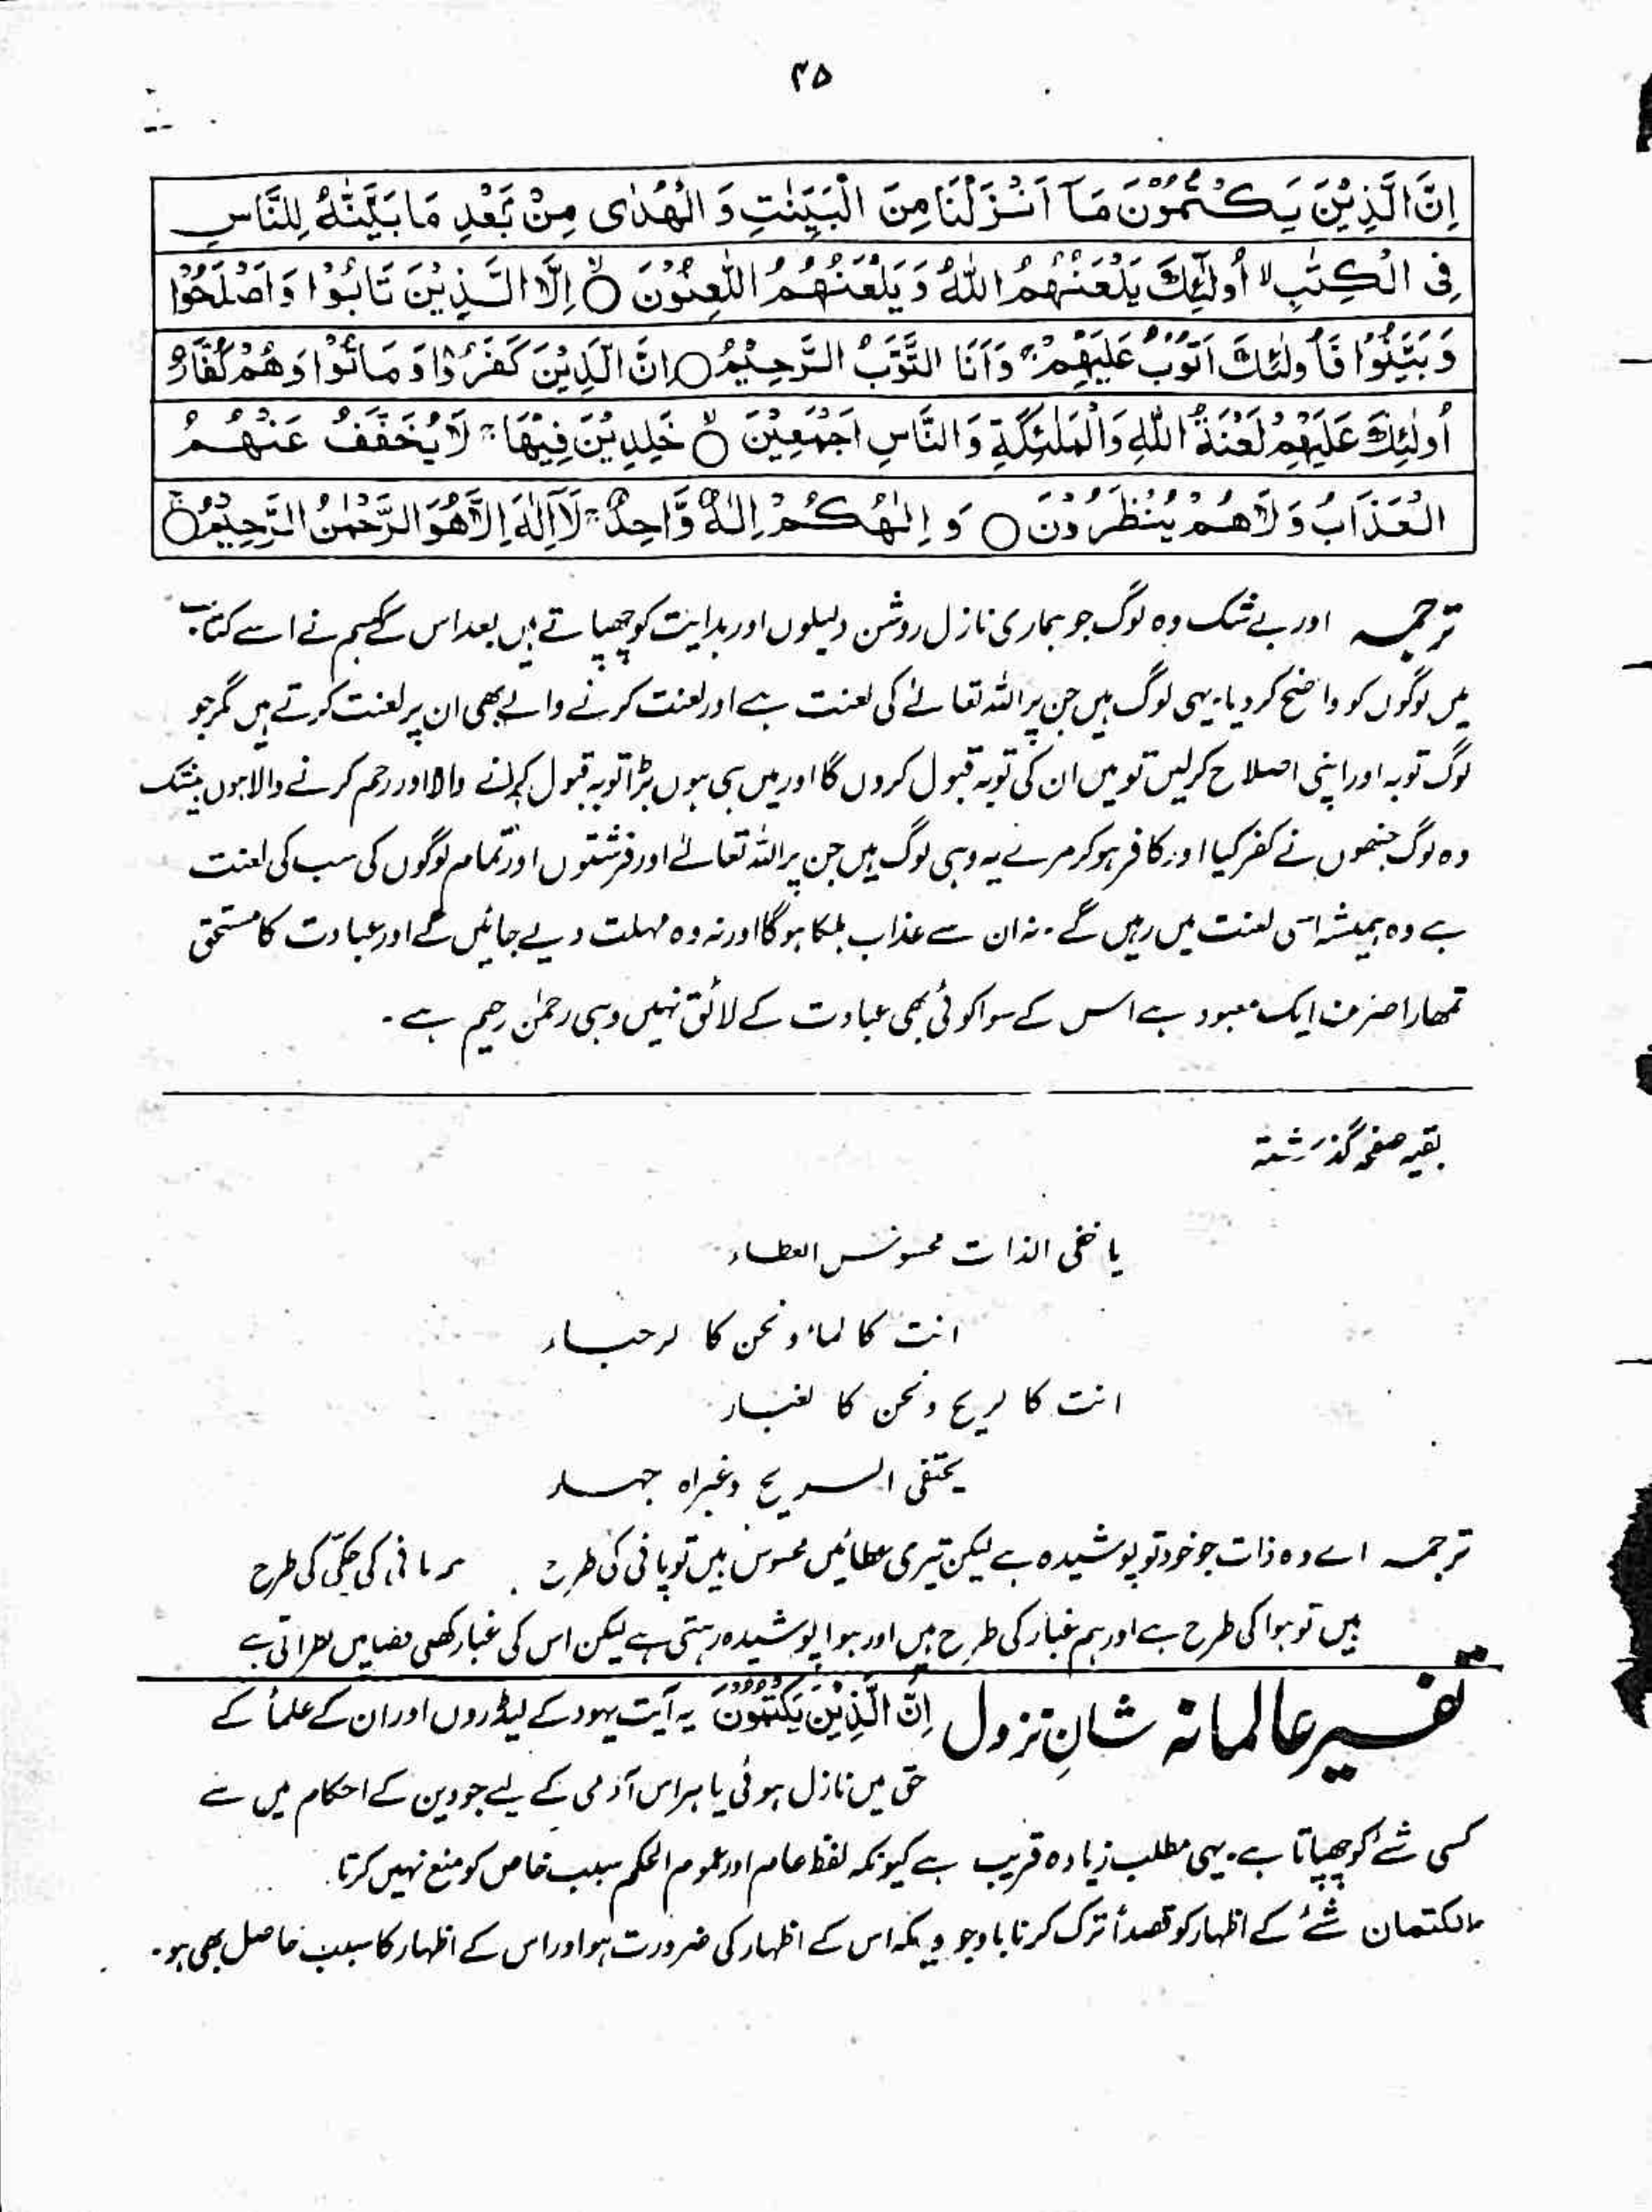 ۴۵
اِنَّ الَّذِيْنَ يَكْتُمُوْنَ مَآ اَنْزَلْنَا مِنَ الْبَيِّنٰتِ وَ الْهُدٰى مِنْۢ بَعْدِ مَا بَيَّنّٰهُ لِلنَّاسِ
فِى الْكِتٰبِ ۙ اُولٰٓئِكَ يَلْعَنُهُمُ اللّٰهُ وَ يَلْعَنُهُمُ اللّٰعِنُوْنَ ۙ○ اِلَّا الَّذِيْنَ تَابُوْا وَ اَصْلَحُوْا
وَ بَيَّنُوْا فَاُولٰٓئِكَ اَتُوْبُ عَلَيْهِمْ ۚ وَ اَنَا التَّوَّابُ الرَّحِيْمُ ○ اِنَّ الَّذِيْنَ كَفَرُوْا وَ مَاتُوْا وَ هُمْ كُفَّارٌ
اُولٰٓئِكَ عَلَيْهِمْ لَعْنَةُ اللّٰهِ وَ الْمَلٰٓئِكَةِ وَ النَّاسِ اَجْمَعِيْنَ ۙ○ خٰلِدِيْنَ فِيْهَا ۚ لَا يُخَفَّفُ عَنْهُمُ
الْعَذَابُ وَ لَا هُمْ يُنْظَرُوْنَ ○ وَ اِلٰهُكُمْ اِلٰهٌ وَّاحِدٌ ۚ لَآ اِلٰهَ اِلَّا هُوَ الرَّحْمٰنُ الرَّحِيْمُ ○
ترجمہ اور بے شک وہ لوگ جو ہماری نازل روشن دلیلوں اور ہدایت کو چھپاتے ہیں بعد اس کے کہ ہم نے اسے کتاب
میں لوگوں کو واضح کر دیا۔ یہی لوگ ہیں جن پر اللہ تعالےٰ کی لعنت ہے اور لعنت کرنے والے بھی ان پر لعنت کرتے ہیں مگر جو
لوگ توبہ اور اپنی اصلاح کرلیں تو میں ان کی توبہ قبول کروں گا اور میں ہی ہوں بڑا توبہ قبول کرنے والا اور رحم کرنے والا ہوں بیشک
وہ لوگ جنھوں نے کفر کیا اور کافر ہو کر مرے یہ وہی لوگ ہیں جن پر اللہ تعالےٰ اور فرشتوں اور تمام لوگوں کی سب کی لعنت
ہے وہ ہمیشہ اسی لعنت میں رہیں گے۔ نہ ان سے عذاب ہلکا ہوگا اور نہ وہ مہلت دیے جائیں گے اور عبادت کا مستحق
تمھارا صرف ایک معبود ہے اس کے سوا کوئی بھی عبادت کے لائق نہیں وہی رحمٰن رحیم ہے۔
بقیہ صفحہ گذشتہ
یا خفی الذات محسوس العطاء
انت کا لماء و نحن کا لرحاء
انت کا لریح و نحن کا لغبار
یختفی الریح وغبراہ جہاء
ترجمہ اے وہ ذات جو خود تو پوشیدہ ہے لیکن تیری عطائیں محسوس ہیں تو پانی کی طرح کی چکّی کی طرح
ہیں تو ہوا کی طرح ہے اور ہم غبار کی طرح ہیں اور ہوا پوشیدہ رہتی ہے لیکن اس کی غبار کھلی فضا میں نظر آتی ہے
تفسیر عالمانہ شانِ نزول اِنَّ الَّذِيْنَ يَكْتُمُوْنَ یہ آیت یہود کے لیڈروں اور ان کے علمأ کے
حق میں نازل ہوئی یا ہر اس آدمی کے لیے جو دین کے احکام میں سے
کسی شے کو چھپاتا ہے۔ یہی مطلب زیادہ قریب ہے کیونکہ لفظ عام اور عموم الحکم سبب خاص کو منع نہیں کرتا۔
الکتمان شئے کے اظہار کو قصداً ترک کرنا باوجودیکہ اس کے اظہار کی ضرورت ہو اور اس کے اظہار کا سبب حاصل بھی ہو۔